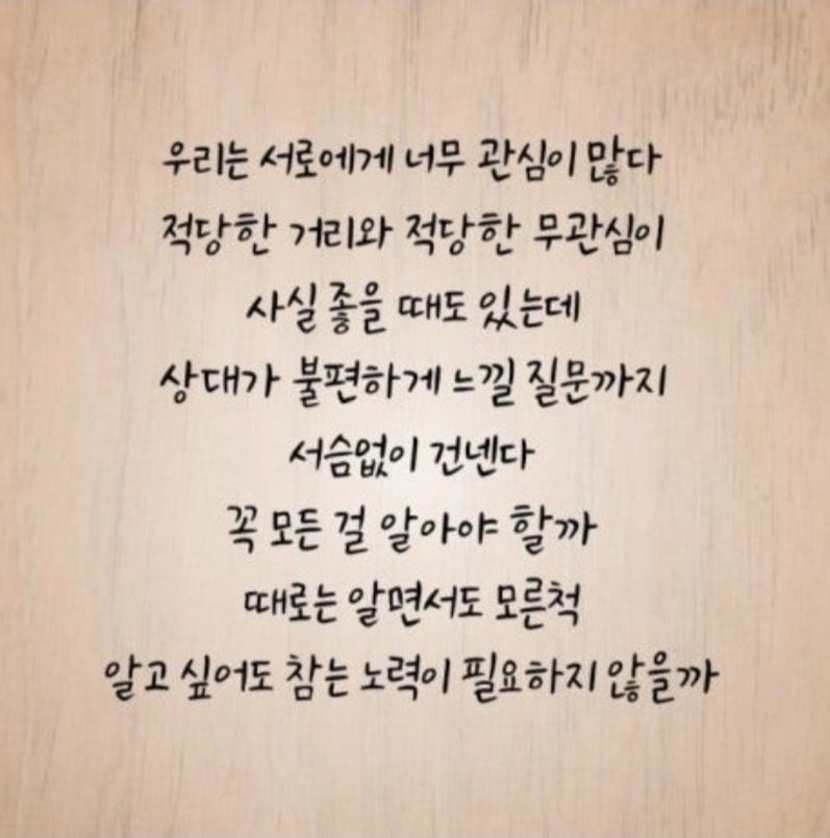 우리는 서로에게 너무 관심이 많다
적당한 거리와 적당한 무관심이
사실 좋을 때도 있는데
상대가 불편하게 느낄 질문까지
서슴없이 건넨다
꼭 모든 걸 알아야 할까
때로는 알면서도 모른척
알고 싶어도 참는 노력이 필요하지 않을까